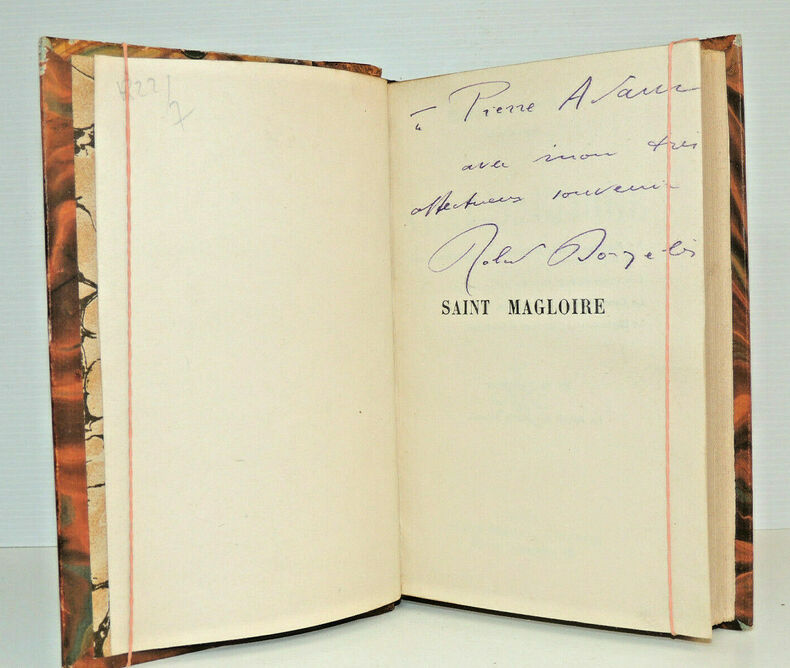 à Pierre Adam
avec mon très
affectueux souvenir
Roland Dorgelès
SAINT MAGLOIRE